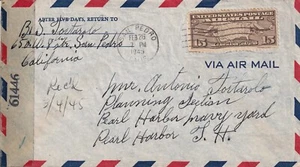 AFTER FIVE DAYS, RETURN TO
B. S. Tortorolo
San Pedro
California
61446
Reck
3/4/43
SAN PEDRO
FEB 26
PM
UNITED STATES POSTAGE
AIR MAIL
15
VIA AIR MAIL
Mr. Antonio Tortorolo
Planning Section
Pearl Harbor Navy Yard
Pearl Harbor T. H.